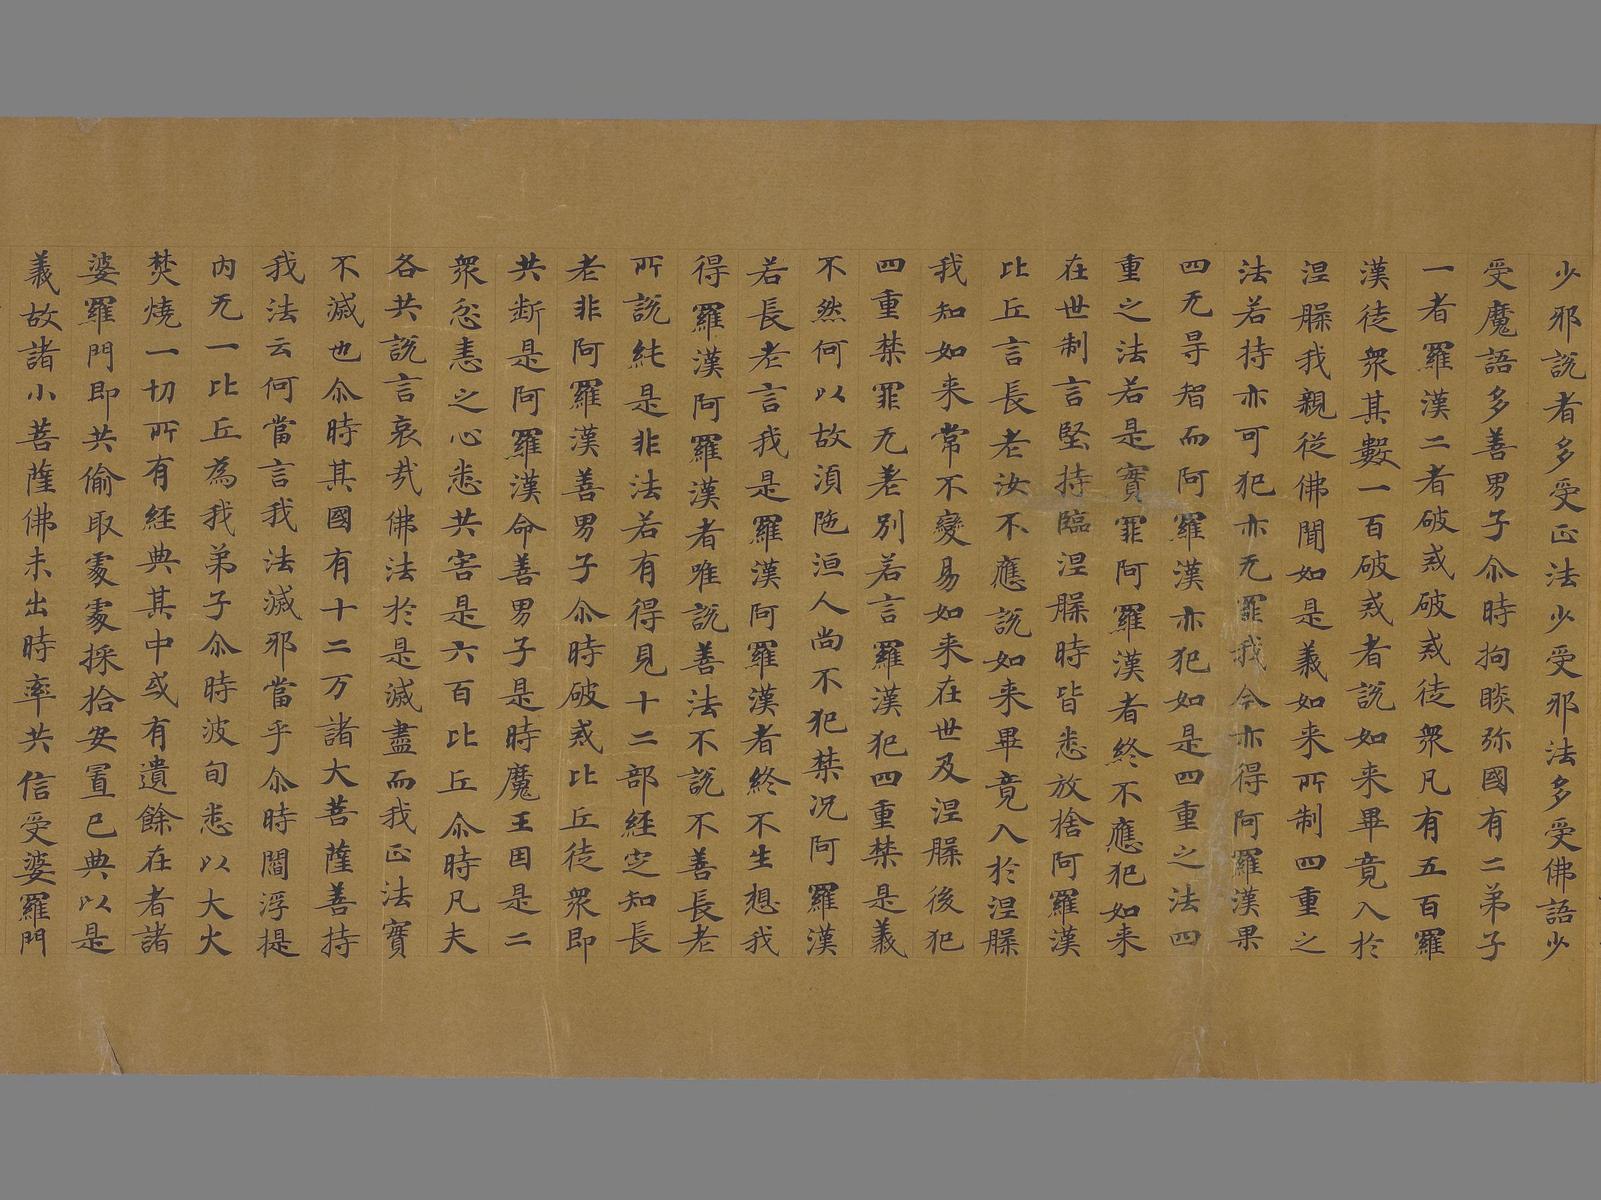 少邪說者多受正法少受邪法多受佛語少
受魔語多善男子尒時拘睒弥國有二弟子
一者羅漢二者破戒破戒徒衆凡有五百羅
漢徒衆其數一百破戒者說如来畢竟入於
涅槃我親從佛聞如是義如来所制四重之
法若持亦可犯亦无罪我今亦得阿羅漢果
四无㝵智而阿羅漢亦犯如是四重之法四
重之法若是實罪阿羅漢者終不應犯如来
在世制言堅持臨涅槃時皆悉放捨阿羅漢
比丘言長老汝不應說如来畢竟入於涅槃
我知如来常不變易如来在世及涅槃後犯
四重禁罪无差別若言羅漢犯四重禁是義
不然何以故湏陁洹人尚不犯禁況阿羅漢
若長老言我是羅漢阿羅漢者終不生想我
得羅漢阿羅漢者唯說善法不說不善長老
所說純是非法若有得見十二部經定知長
老非阿羅漢善男子尒時破戒比丘徒衆即
共断是阿羅漢命善男子是時魔王因是二
衆忿恚之心悉共害是六百比丘尒時凡夫
各共說言哀㢤佛法於是滅盡而我正法實
不滅也尒時其國有十二万諸大菩薩善持
我法云何當言我法滅邪當乎尒時閻浮提
内无一比丘為我弟子尒時波旬悉以大火
焚燒一切所有經典其中或有遺餘在者諸
婆羅門即共偷取處處採拾安置已典以是
義故諸小菩薩佛未出時率共信受婆羅門